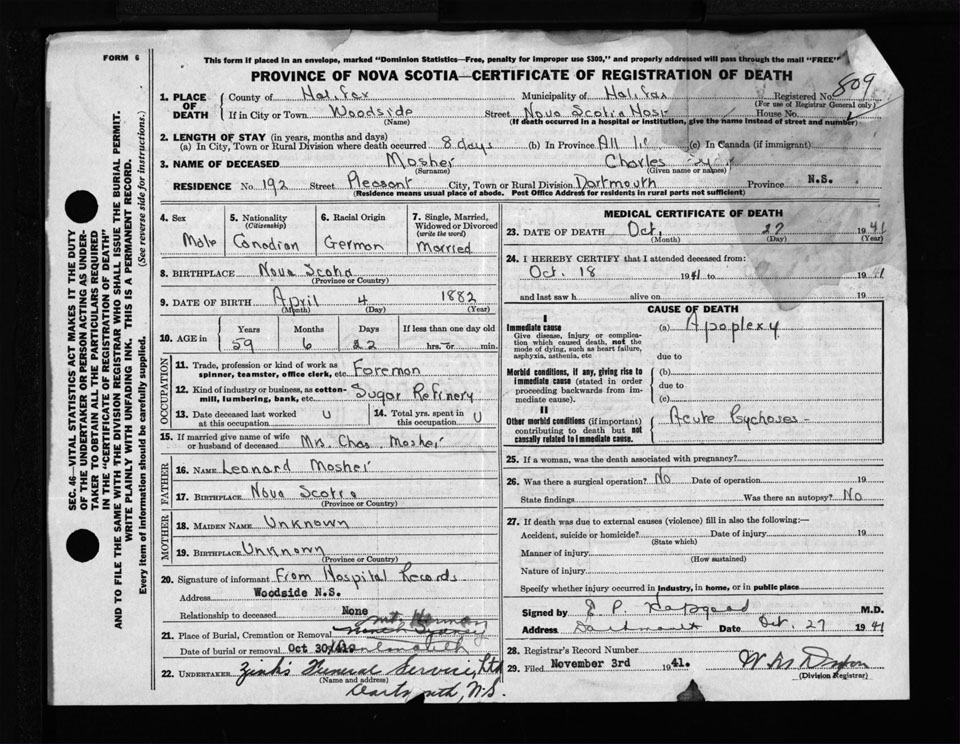 FORM 6
This form if placed in an envelope, marked "Dominion Statistics—Free, penalty for improper use $300," and properly addressed will pass through the mail "FREE"
PROVINCE OF NOVA SCOTIA—CERTIFICATE OF REGISTRATION OF DEATH
809
1. PLACE OF DEATH
County of Halifax Municipality of Halifax Registered No.
(For use of Registrar General only)
If in City or Town Woodside Street Nova Scotia Hosp House No.
(Name) (If death occurred in a hospital or institution, give the name instead of street and number)
2. LENGTH OF STAY (in years, months and days)
(a) In City, Town or Rural Division where death occurred 8 days (b) In Province All (c) In Canada (if immigrant)
3. NAME OF DECEASED Mosher Charles
(Surname) (Given name or names)
RESIDENCE No. 192 Street Pleasant City, Town or Rural Division Dartmouth Province N.S.
(Residence means usual place of abode. Post Office Address for residents in rural parts not sufficient)
4. Sex Male
5. Nationality (Citizenship) Canadian
6. Racial Origin German
7. Single, Married, Widowed or Divorced (write the word) Married
8. BIRTHPLACE Nova Scotia
(Province or Country)
9. DATE OF BIRTH April 4 1882
(Month) (Day) (Year)
10. AGE in Years Months Days If less than one day old
59 6 22 hrs. or min.
OCCUPATION
11. Trade, profession or kind of work as spinner, teamster, office clerk, etc. Foreman
12. Kind of industry or business, as cotton-mill, lumbering, bank, etc. Sugar Refinery
13. Date deceased last worked at this occupation. U
14. Total yrs. spent in this occupation. U
15. If married give name of wife or husband of deceased Mrs Chas. Mosher
FATHER
16. NAME Leonard Mosher
17. BIRTHPLACE Nova Scotia
(Province or Country)
MOTHER
18. MAIDEN NAME Unknown
19. BIRTHPLACE Unknown
(Province or Country)
20. Signature of informant From Hospital Records
Address Woodside N.S.
Relationship to deceased None
21. Place of Burial, Cremation or Removal Mt. Hermon
Date of burial or removal Oct 30/41
22. UNDERTAKER Zink's Funeral Service, Ltd
(Name and address)
Dartmouth, N.S.
MEDICAL CERTIFICATE OF DEATH
23. DATE OF DEATH Oct. 27 1941
(Month) (Day) (Year)
24. I HEREBY CERTIFY that I attended deceased from:
Oct. 18 1941 to 1941
and last saw h alive on 19
CAUSE OF DEATH
I
Immediate cause
Give disease, injury or complication which caused death, not the mode of dying, such as heart failure, asphyxia, asthenia, etc
(a) Apoplexy
due to
Morbid conditions, if any, giving rise to immediate cause (stated in order proceeding backwards from immediate cause).
(b)
due to
(c)
II
Other morbid conditions (if important) contributing to death but not causally related to immediate cause.
Acute Psychoses -
25. If a woman, was the death associated with pregnancy?
26. Was there a surgical operation? No Date of operation 19
State findings Was there an autopsy? No
27. If death was due to external causes (violence) fill in also the following:—
Accident, suicide or homicide? Date of injury 19
(State which)
Manner of injury
(How sustained)
Nature of injury
Specify whether injury occurred in industry, in home, or in public place
Signed by E P Hapgood M.D.
Address Dartmouth Date Oct. 27 1941
28. Registrar's Record Number
29. Filed November 3rd 1941.
(Division Registrar)
SEC. 46—VITAL STATISTICS ACT MAKES IT THE DUTY
OF THE UNDERTAKER OR PERSON ACTING AS UNDER-
TAKER TO OBTAIN ALL THE PARTICULARS REQUIRED
IN THE "CERTIFICATE OF REGISTRATION OF DEATH"
AND TO FILE THE SAME WITH THE DIVISION REGISTRAR WHO SHALL ISSUE THE BURIAL PERMIT.
WRITE PLAINLY WITH UNFADING INK. THIS IS A PERMANENT RECORD.
Every item of information should be carefully supplied. (See reverse side for instructions.)